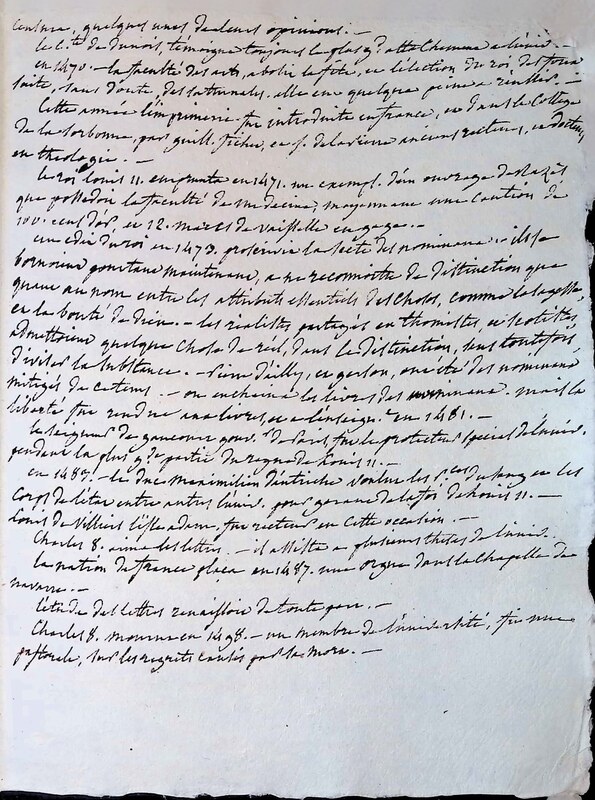 censure, quelques unes de leurs opinions. —
le c.te de Dunois, témoigne toujours le plus g.d attachement a l'univ. —
en 1470. — la faculté des arts, abolit la fête, et l'élection du roi des foux
suite, sans doute, des saturnales. elle eut quelque peine a réussir. —
Cette année l'imprimerie fut introduite en france, et dans le College
de la sorbonne, par guill. fichet, et j. de la pierre anciens recteurs, et docteurs
en théologie. —
le roi louis 11. emprunta en 1471. un exempl. d'un ouvrage de Razès
que possedoit la faculté de medecine, moyennant une caution de
100. ecus d'or, et 12. marcs de vaisselle en gage. —
un edit du roi en 1473. proscrivit la secte des nominaux. — ils se
bornoient pourtant maintenant, a ne reconnoitre de distinction que
quant au nom entre les attributs essentiels des choses, comme la sagesse,
et la bonté de dieu. — les réalistes partagés en thomistes, et scotistes
admettoient quelque chose de réel, dans la distinction, sans toutefois
diviser la substance. — Pierre d'ailly, et gerson, ont été des nominaux
mitigés de ce tems. — on enchaina les livres des nominaux. mais la
liberté fut rendue aux livres, et a l'enseig.t en 1481. —
le seigneur de gaucourt gouv.r de Paris, fut le protecteur special de l'univ.
pendant la plus g.de partie du regne de Louis 11. —
en 1482. — le duc maximilien d'autriche voulut les p.ces du sang et les
Corps de l'etat entre autres l'univ. pour garans de la foi de Louis 11. —
Louis de Villiers l'isle adam, fut recteur en cette occasion. —
Charles 8. aima les lettres. — il assista a plusieurs theses de l'univ.
la nation de france plaça en 1487. une orgue dans la chapelle de
navarre. —
l'étude des lettres renaissoit de toute part. —
Charles 8. mourut en 1498. — un membre de l'université, fit une
pastorale, sur les regrets causés par sa mort. —